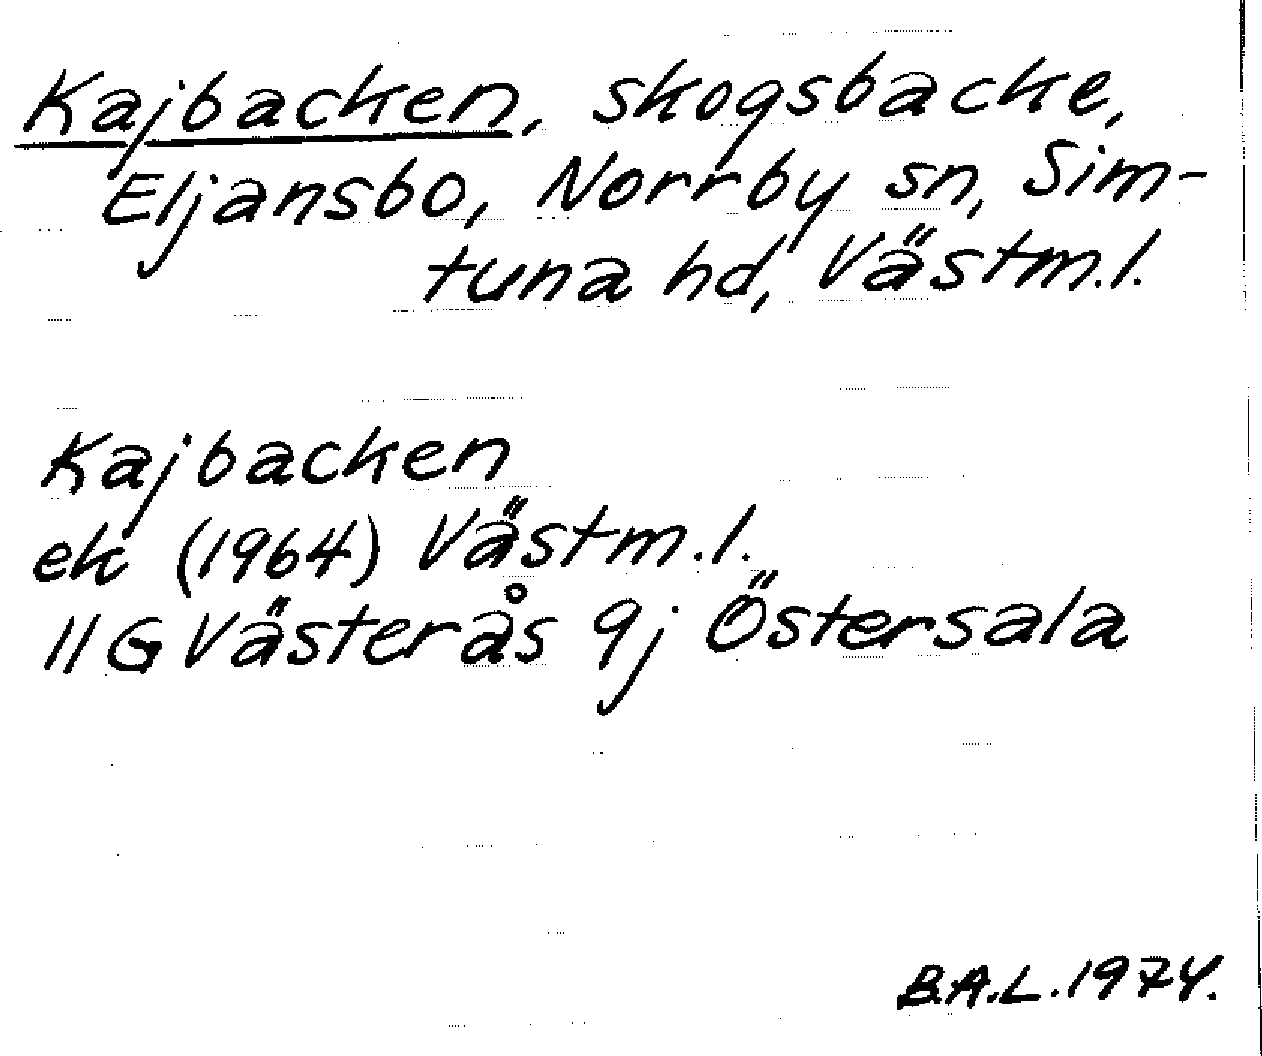 Kajbacken, skogsbacke,
Eljansbo, Norrby sn, Sim-
tuna hd, Västm.l.
Kajbacken
ek (1964) Västm.l.
11G Västerås 9j Östersala
B.A.L. 1974.